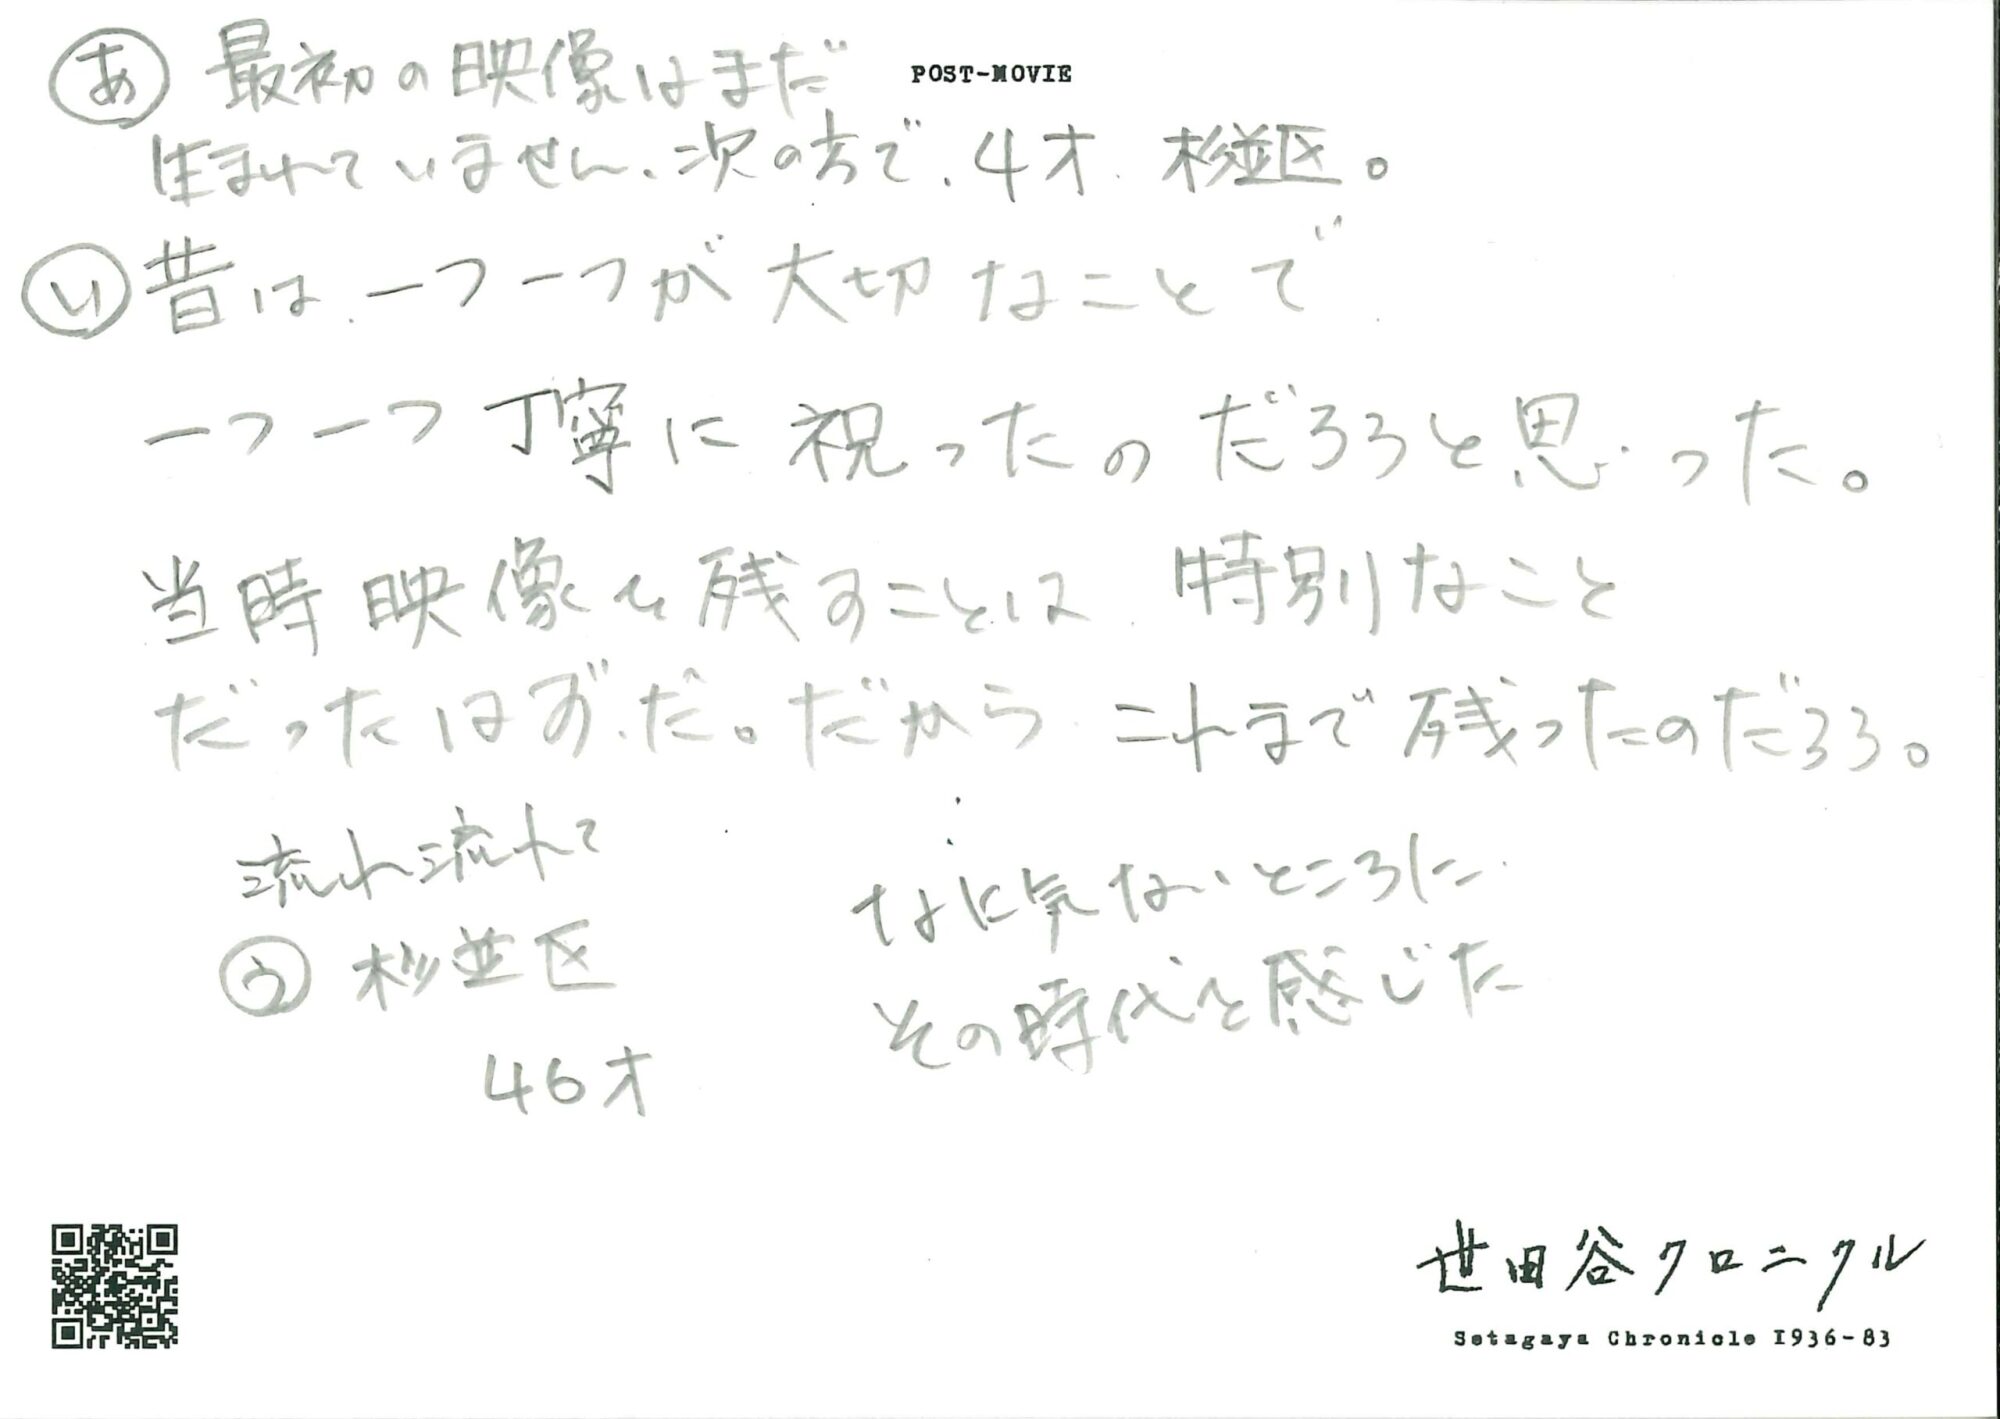 POST-MOVIE
あ 最初の映像はまだ
生まれていません、次の方で、4才、杉並区。
い 昔は、一つ一つが大切なことで
一つ一つ丁寧に祝ったのだろうと思った。
当時映像を残すことは、特別なこと
だったはずだ。だからこれまで残ったのだろう。
流れ流れて
う 杉並区
46才
なに気ないところに
その時代を感じた
世田谷クロニクル
Setagaya Chronicle 1936-83